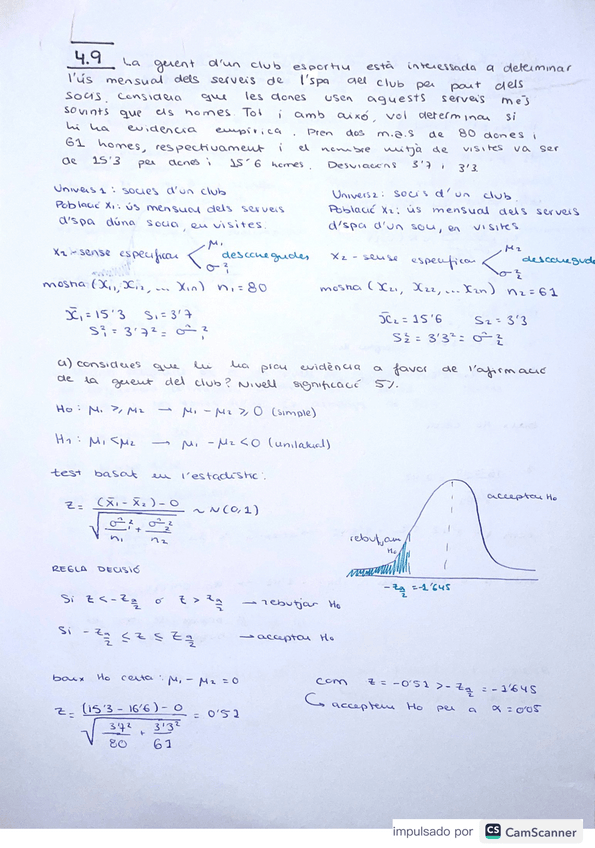 4.9 La gerent d'un club esportiu està interessada a determinar
l'ús mensual dels serveis de l'spa del club per part dels
socis. Considera que les dones usen aquests serveis més
sovints que els homes. Tot i amb això, vol determinar si
hi ha evidència empírica. Pren dos m.a.s de 80 dones i
61 homes, respectivament i el nombre mitjà de visites va ser
de 15'3 per dones i 15'6 homes. Desviacions 3'7 i 3'3
Univers 1: socies d'un club
Població X1: ús mensual dels serveis
d'spa d'una socia, en visites.
X2 - sense especificar μ1 σ²1 desconegudes
mostra (X11, X12, ... X1n) n1 = 80
X̄1 = 15'3 S1 = 3'7
S²1 = 3'7² = σ̂²1
Univers 2: socis d'un club
Població X2: ús mensual dels serveis
d'spa d'un soci, en visites
X2 - sense especificar μ2 σ²2 desconegudes
mostra (X21, X22, ... X2n) n2 = 61
X̄2 = 15'6 S2 = 3'3
S²2 = 3'3² = σ̂²2
a) consideres que hi ha prou evidència a favor de l'afirmació
de la gerent del club? Nivell significació 5%.
H0: μ1 ≥ μ2 → μ1 - μ2 ≥ 0 (simple)
H1: μ1 < μ2 → μ1 - μ2 < 0 (unilateral)
test basat en l'estadístic:
Z = (X̄1 - X̄2) - 0 / √(σ̂²1/n1 + σ̂²2/n2) ~ N(0,1)
acceptar H0
rebutjam
H0
-Zα/2 = -1'645
REGLA DECISIÓ
Si Z < -Zα/2 o Z > Zα/2 → rebutjar H0
Si -Zα/2 ≤ Z ≤ Zα/2 → acceptar H0
baix H0 certa: μ1 - μ2 = 0
Z = (15'3 - 16'6) - 0 / √(3'7²/80 + 3'3²/61) = 0'51
com Z = -0'51 > -Zα/2 = -1'645
↳ acceptem H0 per a α = 0'05
impulsado por CS CamScanner